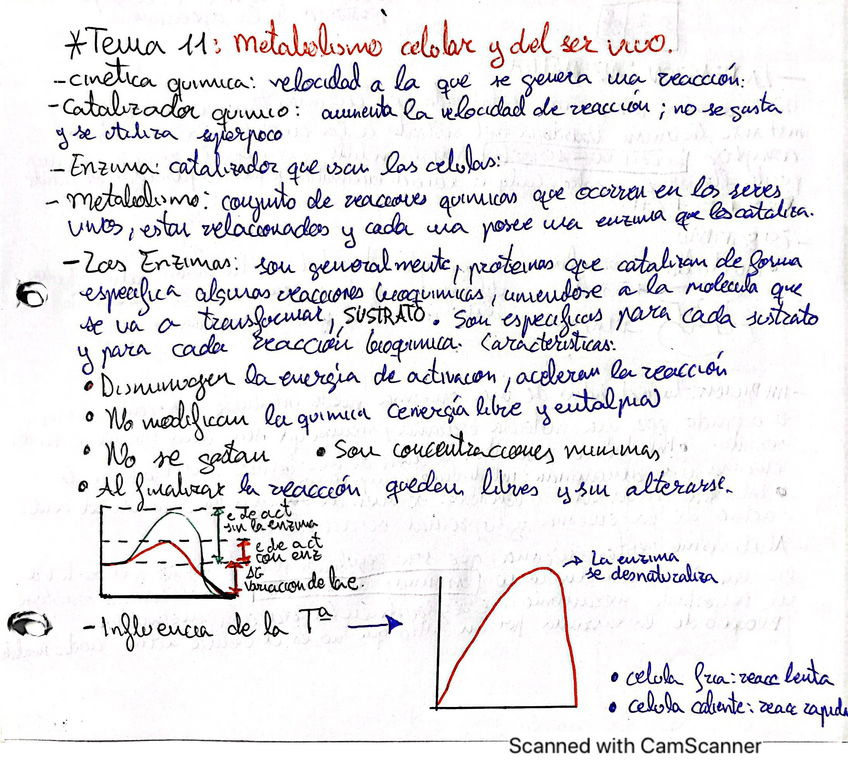 *Tema 11: Metabolismo celular y del ser vivo.
- Cinética química: velocidad a la que se genera una reacción.
- Catalizador químico: aumenta la velocidad de reacción; no se gasta
y se utiliza superpoco
- Enzima: catalizador que usan las celulas.
- Metabolismo: conjunto de reacciones quimicas que ocurren en los seres
vivos, estan relacionados y cada una posee una enzima que las cataliza.
- Las Enzimas: son generalmente, proteinas que catalizan de forma
especifica algunas reacciones bioquimicas, uniendose a la molecula que
se va a transformar, SUSTRATO. Son especificas para cada sustrato
y para cada reacción bioquimica. Caracteristicas:
• Disminuyen la energía de activacion, aceleran la reacción
• No modifican la quimica (energía libre y entalpia)
• No se gastan • Son concentraciones minimas
• Al finalizar la reacción quedan libres y sin alterarse.
e de act
sin la enzima
e de act
con enz
ΔG
Variacion de la e.
→ La enzima
se desnaturaliza
- Influencia de la Tª →
• celula fria: reacc lenta
• celula caliente: reacc rapida
Scanned with CamScanner